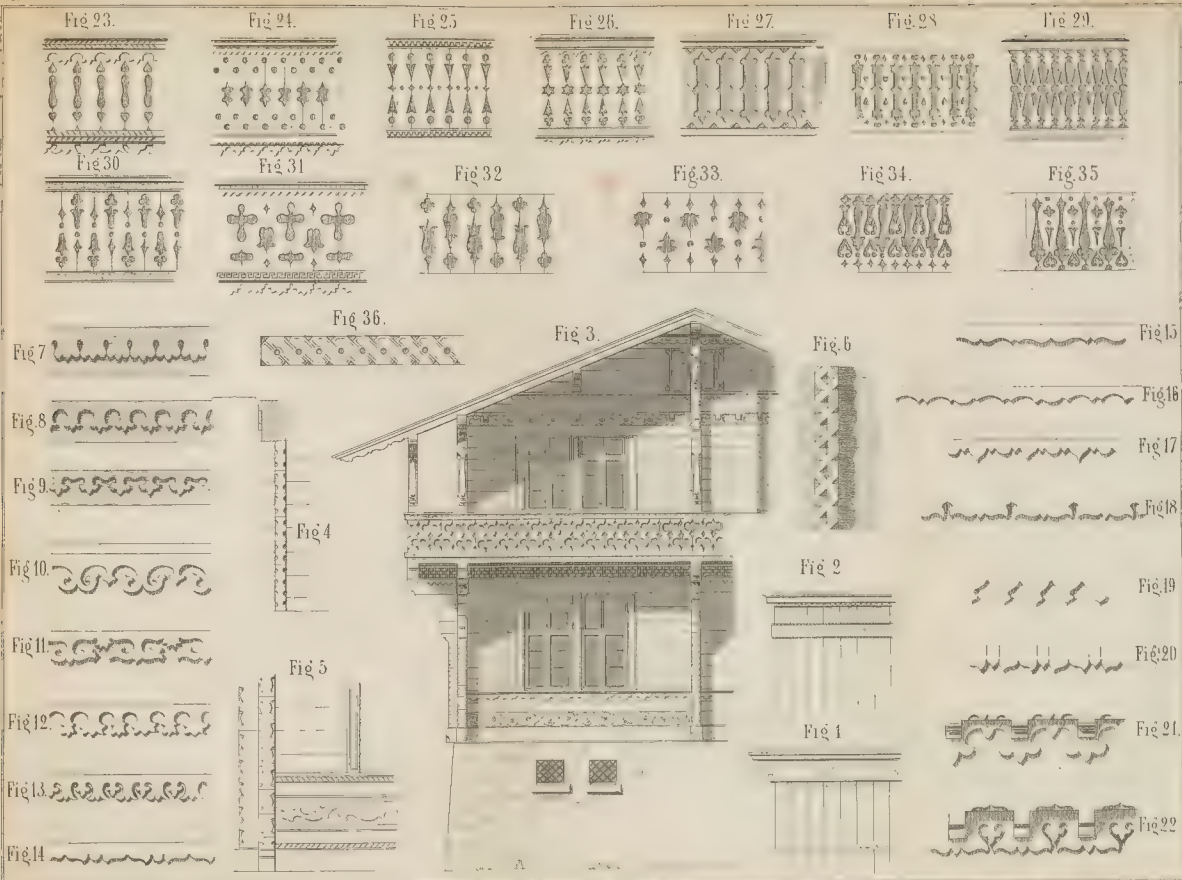 Fig 23.
Fig 24.
Fig 25
Fig 26.
Fig 27.
Fig. 28
Fig 29.
Fig 30
Fig 31
Fig 32
Fig. 33.
Fig. 34.
Fig. 35
Fig 36.
Fig 3.
Fig. 6
Fig 7
Fig. 8
Fig 9.
Fig 10.
Fig 11.
Fig 12.
Fig 13.
Fig 14
Fig 4
Fig 5
Fig 2
Fig 1
Fig 15
Fig 16
Fig 17
Fig 18
Fig. 19
Fig. 20
Fig 21.
Fig 22